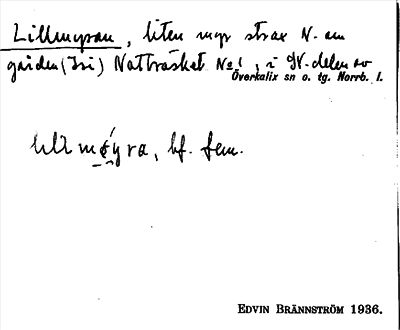 Lillmyran, liten myr strax N. om
gården (Isi) Nattråsket No 1, i N.-delen av
Överkalix sn o. tg. Norrb. l.
lill møyra, bf. fem.
EDVIN BRÄNNSTRÖM 1936.